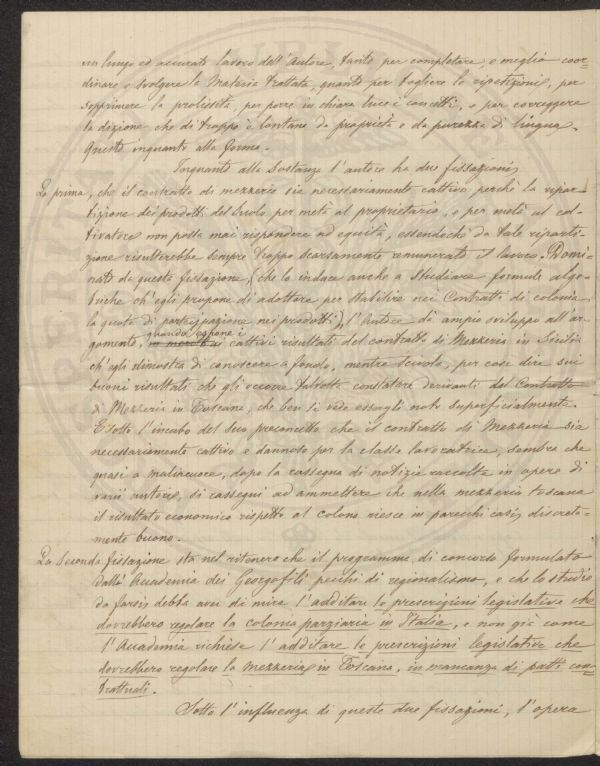 un lungo ed accurato lavoro dell'Autore, tanto per completare, e meglio coor=
dinare e svolgere la Materia trattata, quanto per togliere le ripetizioni, per
sopprimere la prolissità, per porre in chiara luce i concetti, e per correggere
la dizione che di troppo è lontana da proprietà e da purezza di lingua.
Questo inquanto alla forma.
Inquanto alla Sostanza l'autore ha due fissazioni,
La prima, che il contratto di mezzeria sia necessariamente cattivo perché la ripar=
tizione dei prodotti del Suolo per metà al proprietario, e per metà al col=
tivatore non possa mai rispondere ad equità, essendeché da tale riparti=
zione risulterebbe sempre troppo scarsamente remunerato il lavoro. Domi=
nato da questa fissazione, (che lo induce anche a studiare formule alge=
briche ch'egli propone di adottare per stabilire nei Contratti di colonia
la quota di partecipazione nei prodotti), l'Autore dà ampio sviluppo all'ar=
gomento, quando espone i cattivi risultati del contratto di Mezzeria in Sicilia
ch'egli dimostra di conoscere a fondo, mentre scivola, per così dire sui
buoni risultati che gli occorre talvolta constatare derivanti dal Contratto
di Mezzeria in Toscana, che ben si vede essergli noto superficialmente.
E sotto l'incubo del suo preconcetto che il contratto di Mezzeria sia
necessariamente cattivo e dannoso per la classe lavoratrice, sembra che
quasi a malincuore, dopo la rassegna di notizie raccolte in opere di
varii autori, si rassegni ad ammettere che nella mezzeria toscana
il risultato economico rispetto al colono riesce in parecchi casi discreta=
mente buono.
La Seconda fissazione sta nel ritenere che il programma di concorso formulato
dalla Accademia dei Georgofili pecchi di regionalismo, e che lo studio
da farsi debba aver di mira l'additare le prescrizioni legislative che
dovrebbero regolare la colonia parziaria in Italia, e non già come
l'Accademia richiese l'additare le prescrizioni legislative che
dovrebbero regolare la mezzeria in Toscana, in mancanza di patti con=
trattuali.
Sotto l'influenza di queste due fissazioni, l'opera